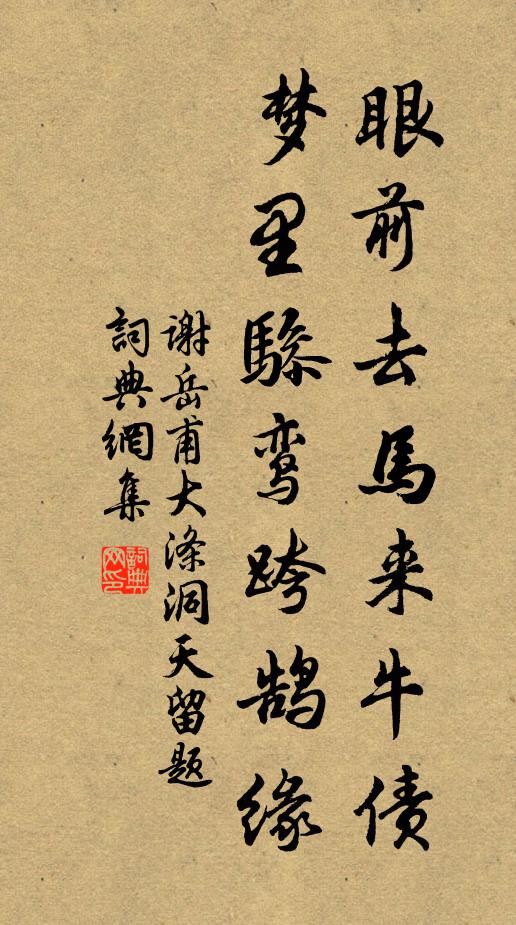 眼前去馬来牛债
梦里驂鸾跨鹄缘
谢岳甫大涤洞天留题
詞典網集
詞典网印